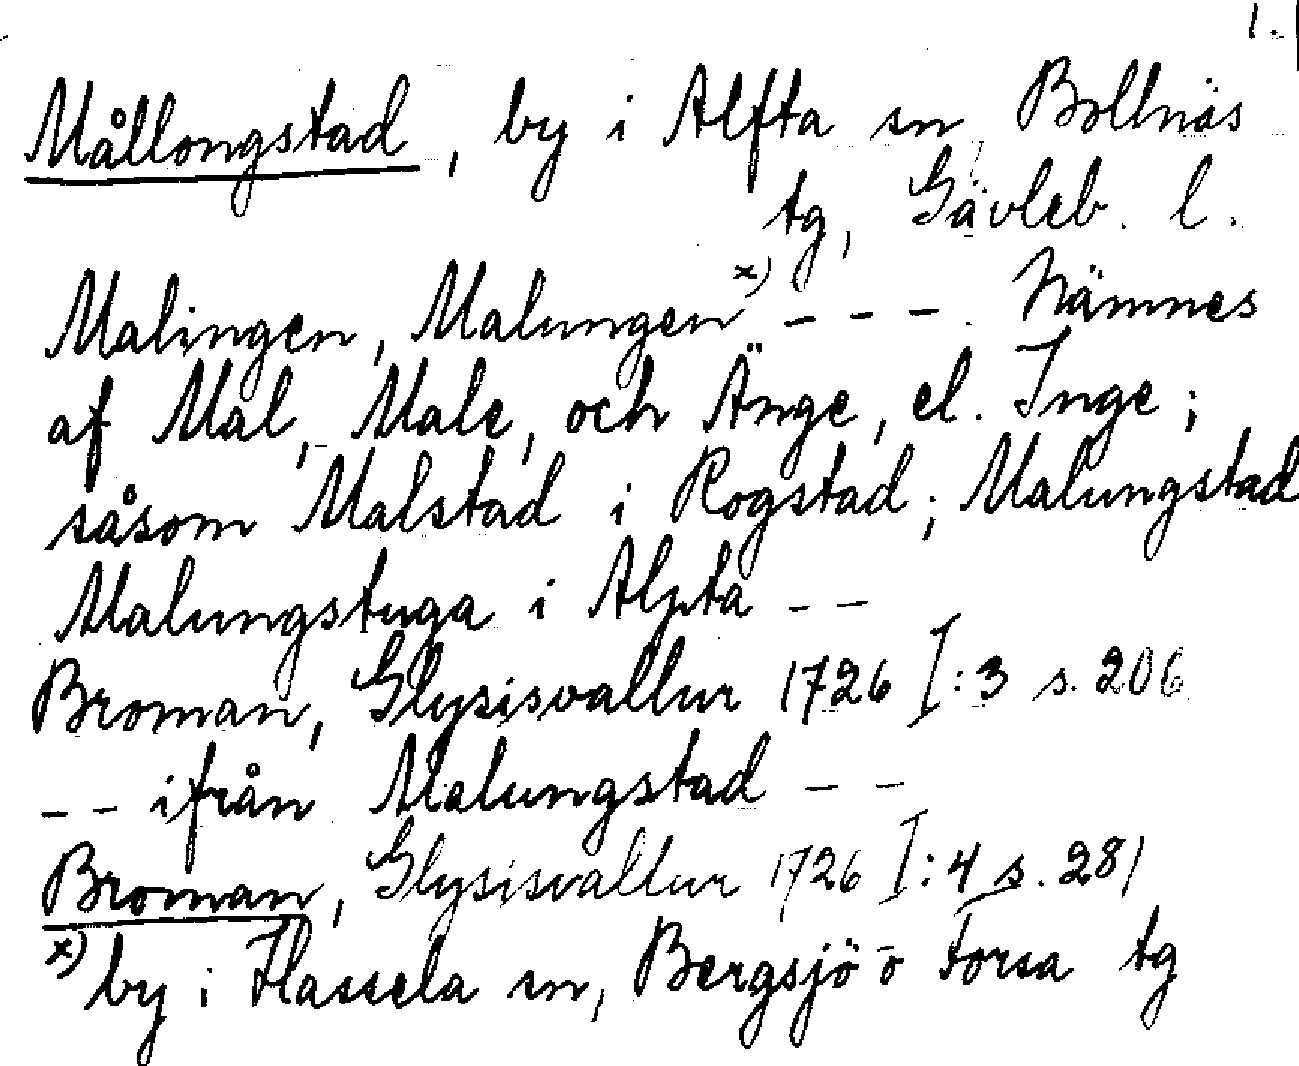 1.
Mållongstad, by i Alfta sn, Bollnäs
tg, Gävleb. l.
Malingen, Malungen x) - - - . Nämnes
af Mal, Male, och Änge, el. Inge;
såsom Malstad i Rogstad; Malungstad
Malungstuga i Alpta - -
Broman, Glysisvallur 1726 I:3 s. 206
- - ifrån Malungstad - -
Broman, Glysisvallur 1726 I:4 s. 281
x) by i Hassela sn, Bergsjö o Forsa tg